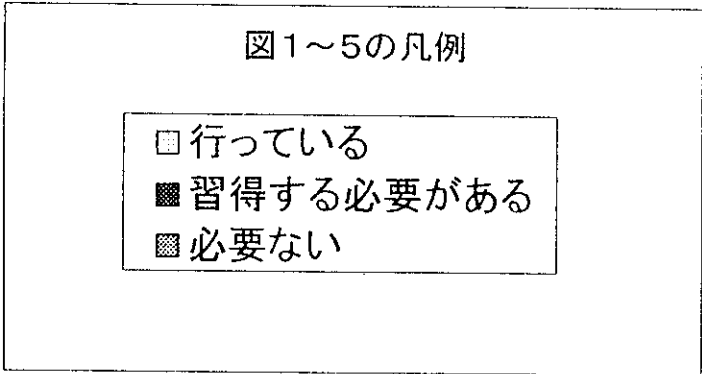 図1～5の凡例
行っている
習得する必要がある
必要ない